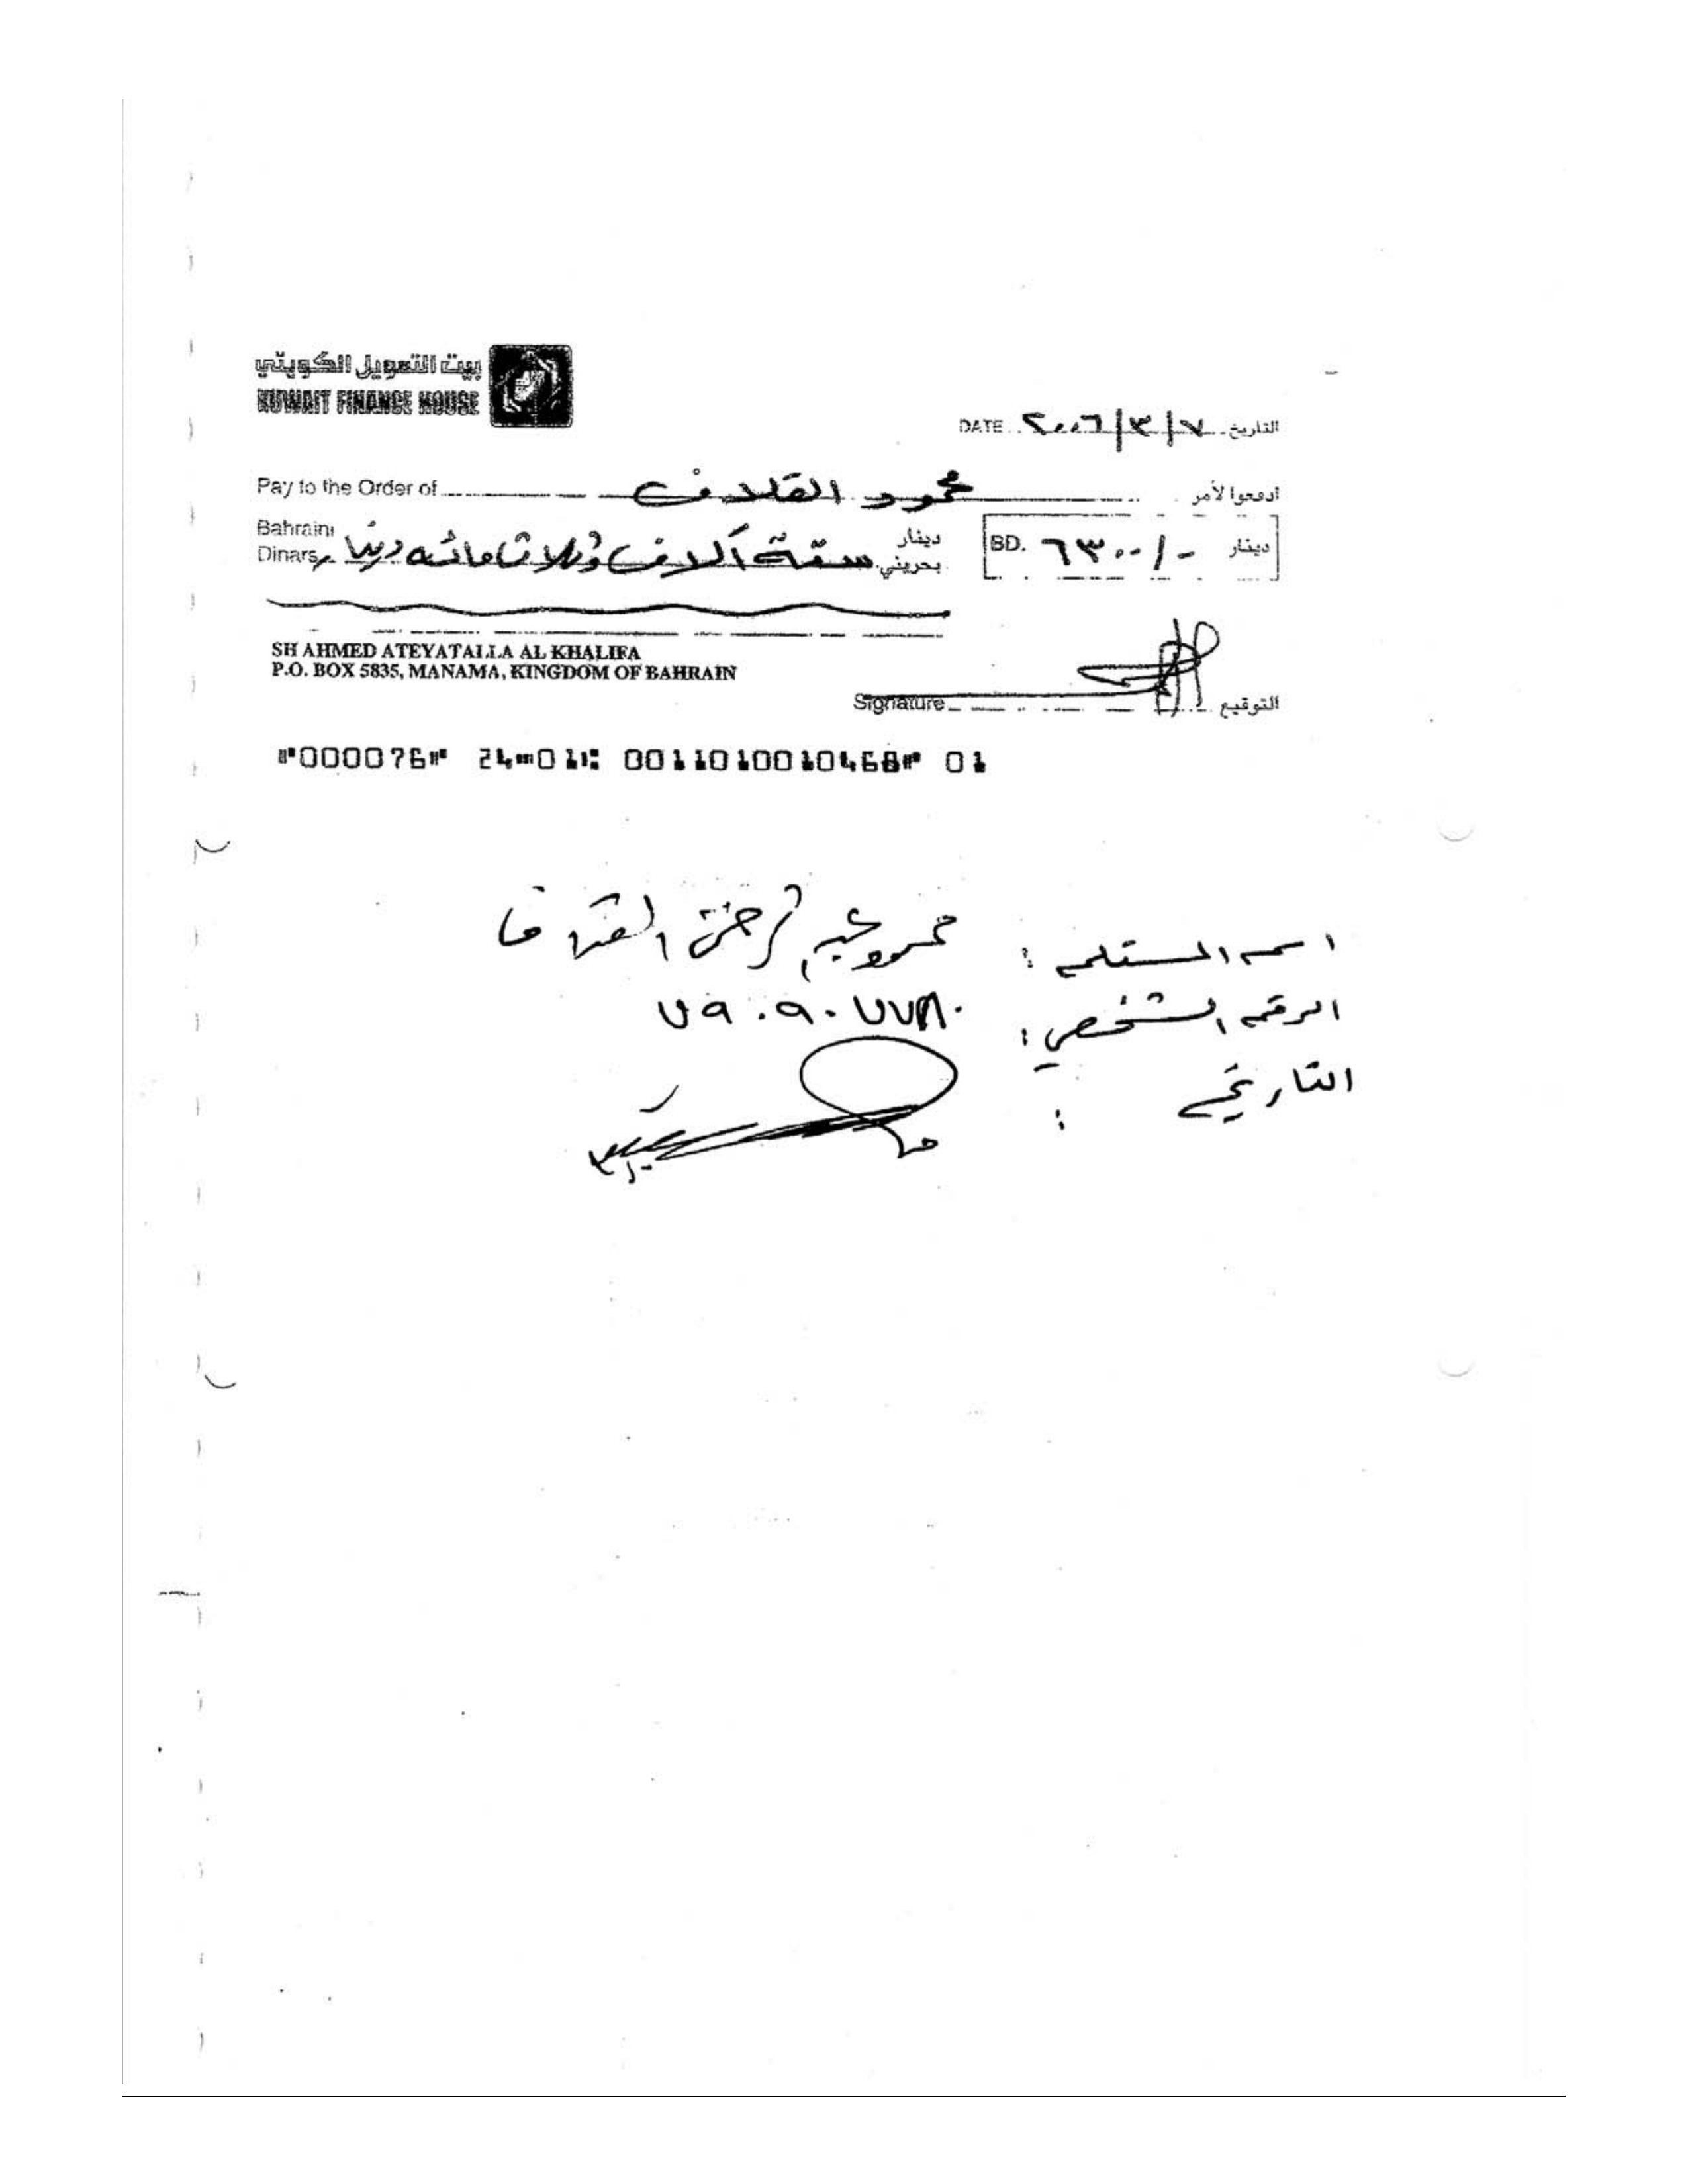 بيت التمويل الكويتي
KUWAIT FINANCE HOUSE
DATE ٢٠٠٦/٣/٧ التاريخ
Pay to the Order of محمود القلاف ادفعوا لأمر
Bahraini Dinars ستة آلاف وثلاثمائه دينار دينار بحريني
BD. ٦٣٠٠/- دينار
SH AHMED ATEYATALLA AL KHALIFA
P.O. BOX 5835, MANAMA, KINGDOM OF BAHRAIN
Signature التوقيع
⑈000076⑈ 24⑉01⑆ 0011010010468⑈ 01
اسم المستلم : محمود عبدالرحمن القلاف
الرقم الشخصي : ٧٩٠٩٠٧٧٨٠
التاريخ :